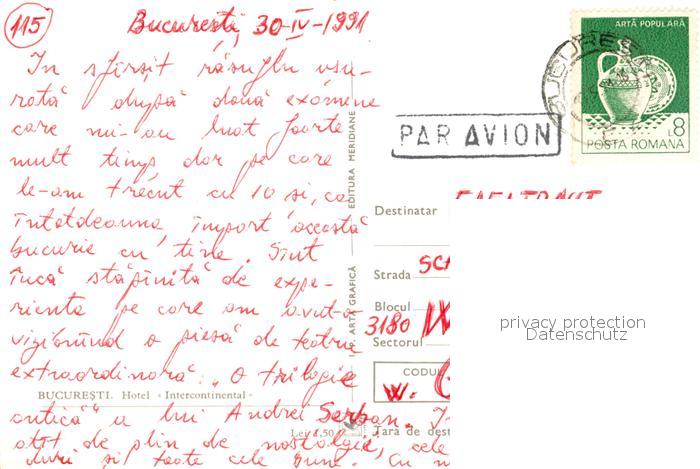 115
București, 30-IV-1991
In sfîrșit răsuflu ușu-
rată după două examene
care mi-au luat foarte
mult timp dar pe care
le-am trecut cu 10 și, ca
întotdeauna, împart această
bucurie cu tine. Sînt
încă stăpînită de expe-
riența pe care am avut-o
vizionînd o piesă de teatru
extraordinară: "O trilogie
antică" a lui Andrei Serban.
atît de plin de nostalgie, cele
și toate cele bune. Cu
BUCUREȘTI. Hotel «Intercontinental»
Lei 1,50
I. P. ARTA GRAFICĂ
EDITURA MERIDIANE
PAR AVION
BUCUREȘTI
ARTĂ POPULARĂ
L8
POSTA ROMANA
Destinatar
Strada
Blocul
3180
Sectorul
CODUL
W.
Țara de dest
privacy protection
Datenschutz